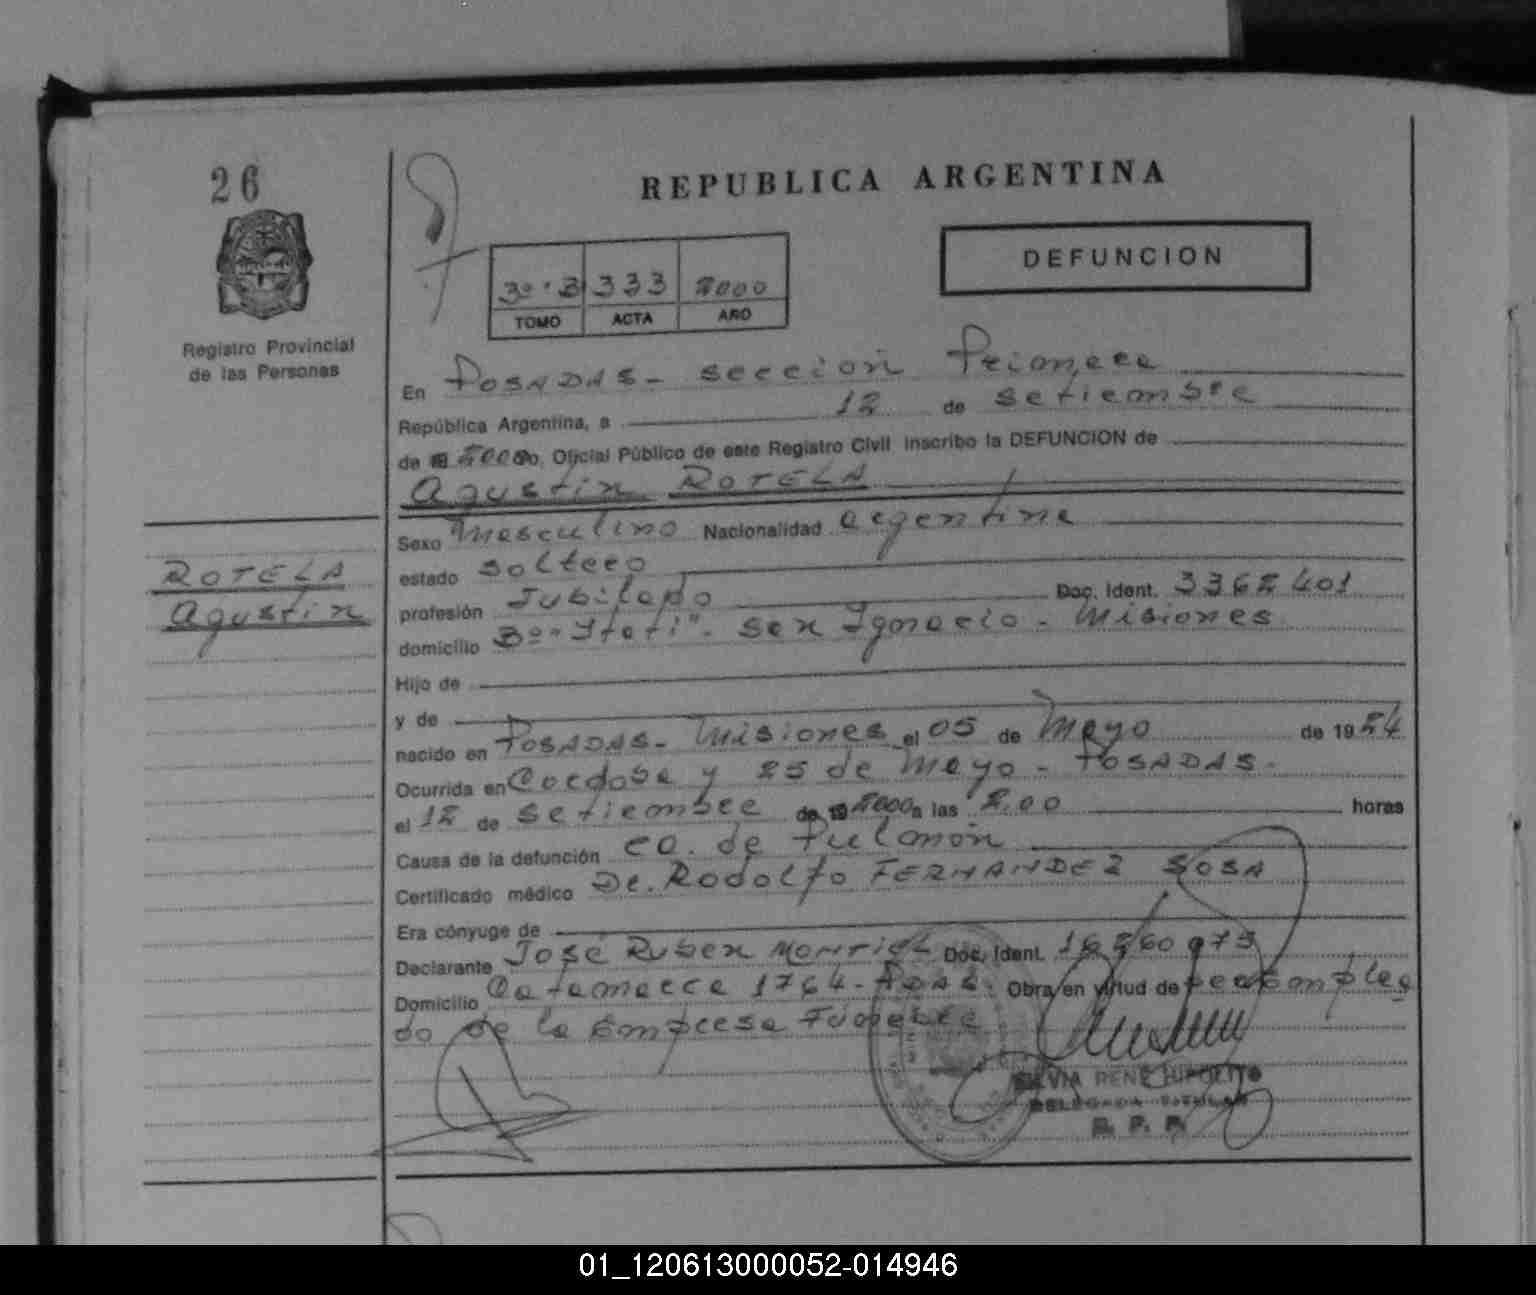 26
REPUBLICA ARGENTINA
DEFUNCION
3º.B 333 2000
TOMO ACTA AÑO
Registro Provincial
de las Personas
En POSADAS - seccion Primera
República Argentina, a 12 de setiembre
de 2000 Yo, Oficial Público de este Registro Civil inscribo la DEFUNCION de
Agustin ROTELA
Sexo Masculino Nacionalidad argentina
estado soltero
ROTELA
Agustin
profesión Jubilado Doc. Ident. 3362401
domicilio Bº "Itati" - San Ignacio - Misiones
Hijo de
y de
nacido en POSADAS - Misiones el 05 de Mayo de 1924
Ocurrida en Cordoba y 25 de Mayo - POSADAS -
el 12 de setiembre de 2000 a las 2.00 horas
Causa de la defunción ca. de Pulmón
Certificado médico Dr. Rodolfo FERNANDEZ SOSA
Era cónyuge de
Declarante José Ruben MONTIEL Doc. Ident. 16260973
Domicilio Catamarca 1764 - Pdas. Obra en virtud de ser Emplea
do de la Empresa Fúnebre
SILVIA RENE HIPOLITO
DELEGADA TITULAR
R. P. P.
01_120613000052-014946